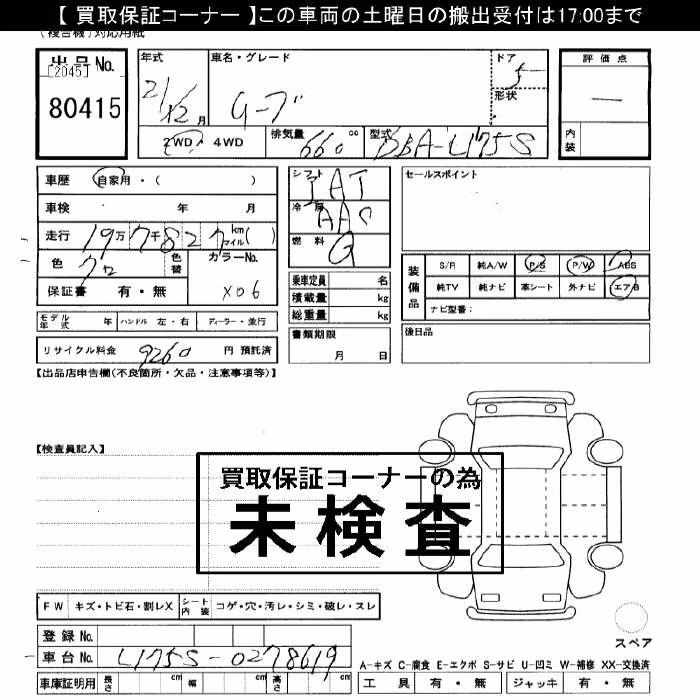 【 買取保証コーナー 】この車両の土曜日の搬出受付は17:00まで
(複合機)対応用紙
出品No.
[2045]
80415
年式
21/12月
車名・グレード
ドア
5
形状
評価点
―
内装
2WD・4WD
排気量
660cc
型式
DBA-L175S
車歴 自家用・( )
車検 年 月
走行 19万7千827km マイル( )
色
色替
カラーNo.
X06
保証書 有・無
シフト
冷房
AAC
燃料
G
乗車定員 名
積載量 kg
総重量 kg
セールスポイント
装備品
S/R 純A/W P/S P/W ABS
純TV 純ナビ 革シート 外ナビ エアB
ナビ型番:
モデル年式 年 ハンドル 左・右 ディーラー・並行
書類期限
月 日
後日品
リサイクル料金 9260 円 預託済
【出品店申告欄(不良箇所・欠品・注意事項等)】
【検査員記入】
買取保証コーナーの為
未検査
FW キズ・トビ石・割レX シート内装 コゲ・穴・汚レ・シミ・破レ・スレ
スペア
登録No.
車台No. L175S-0278619
A-キズ C-腐食 E-エクボ S-サビ U-凹ミ W-補修 XX-交換済
車庫証明用 長さ cm 幅 cm 高さ cm
工具 有・無 ジャッキ 有・無